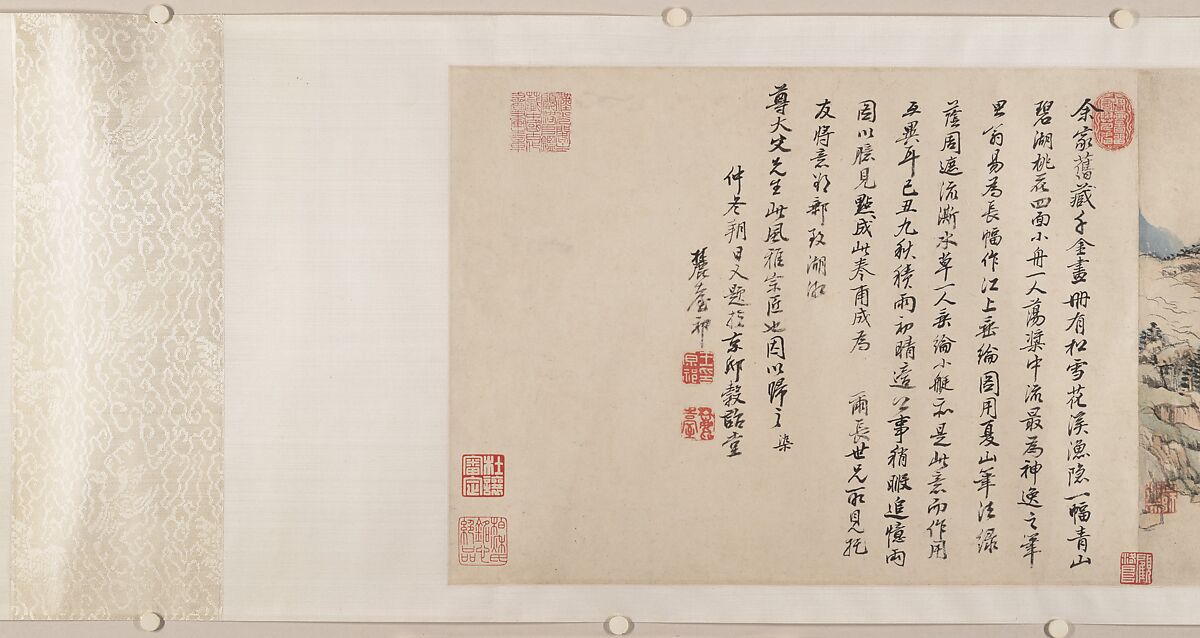 余家舊藏千金畫冊有松雪花溪漁隱一幅青山
碧湖桃花四面小舟一人蕩槳中流最為神逸之筆
思翁易為長幅作江上垂綸圖用夏山筆法綠
蔭周遮流澌水草一人垂綸小艇亦是此意而作用
互異耳己丑九秋積雨初晴適公事稍暇追憶兩
圖以臆見點成此卷甫成為 爾長世兄所見托
友將意郵致湖湘
尊大史先生此風雅宗匠也因以歸之染
仲冬朔日又題於京邸穀詒堂
麓臺祁